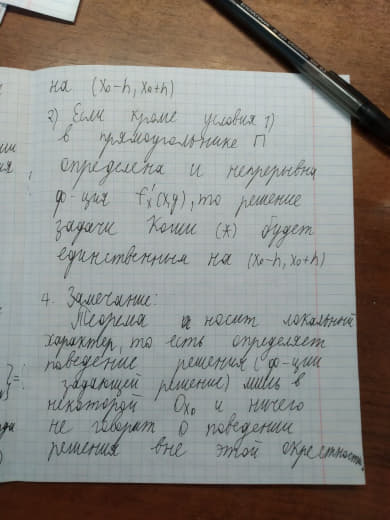 на (x₀-h, x₀+h)
2) Если кроме условия 1)
в прямоугольнике П
определена и непрерывна
ф-ция f'ₓ(x,y), то решение
задачи Коши (*) будет
единственным на (x₀-h, x₀+h)
4. Замечание:
Теорема носит локальный
характер, то есть определяет
поведение решения (ф-ции
задающей решение) лишь в
некоторой Oₓ₀ и ничего
не говорит о поведении
решения вне этой окрестности.